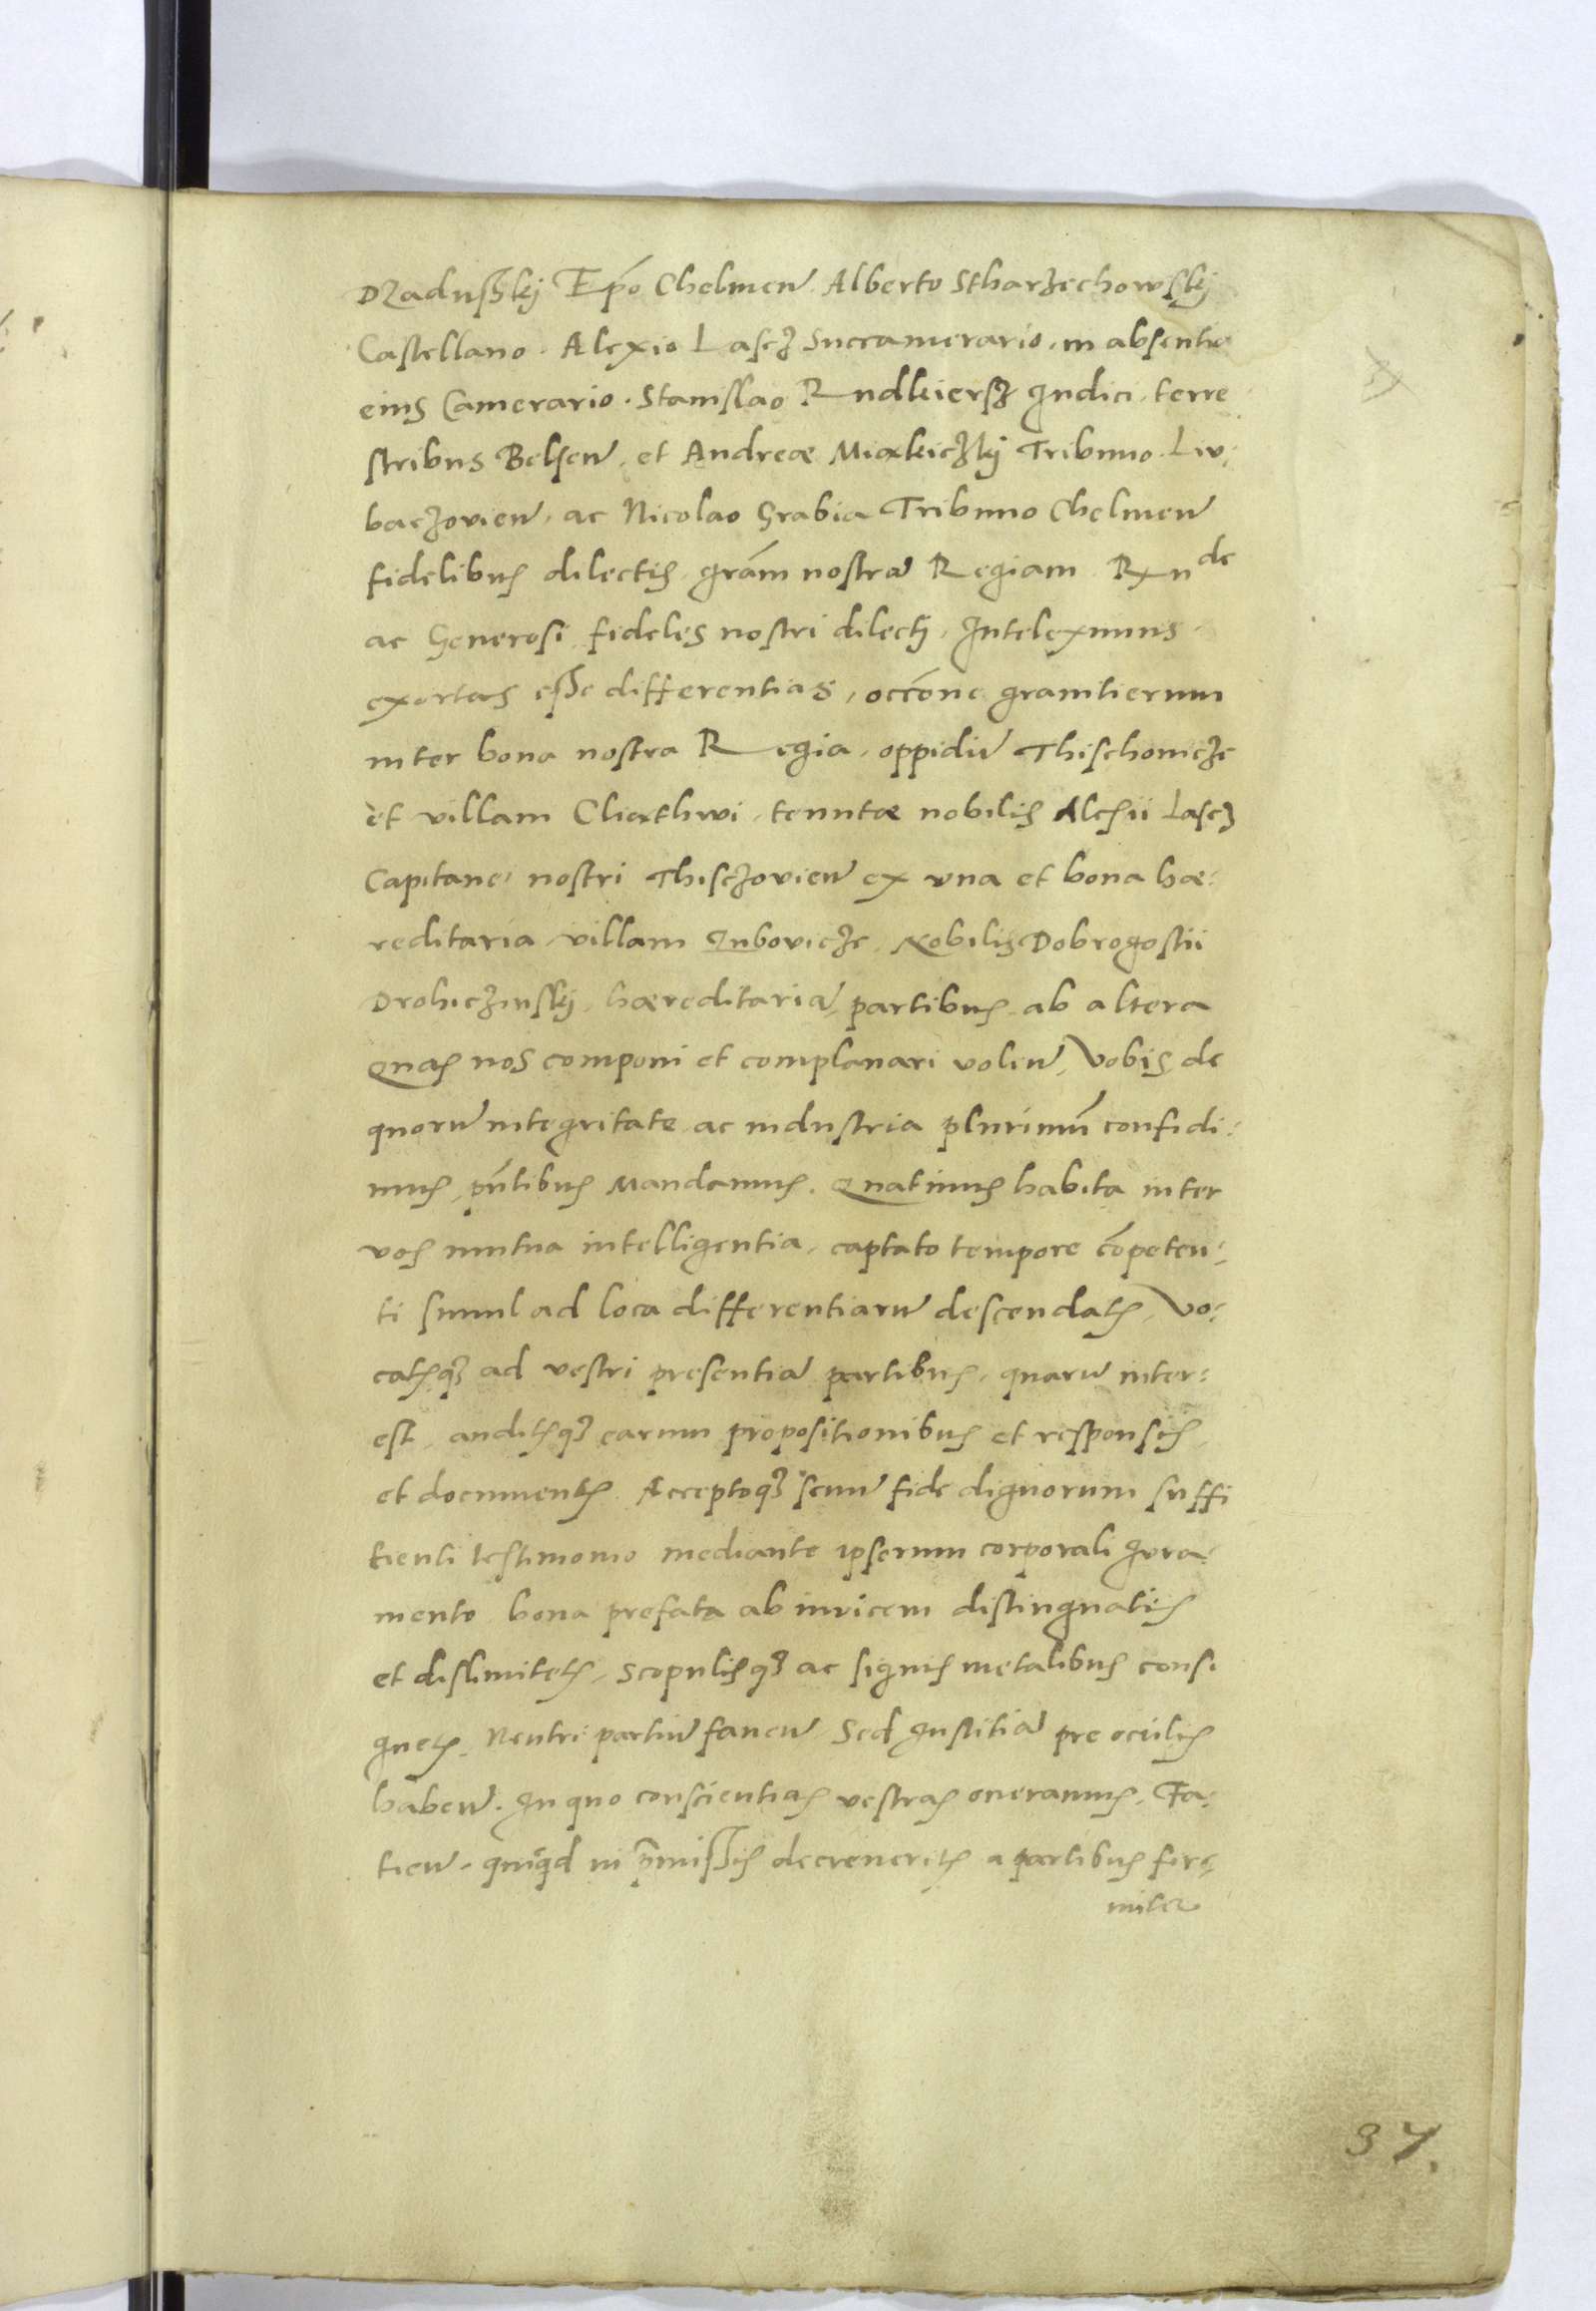 Dzadusskij Ep̃o Chelmen̄ Alberto Stharzechowskij
Castellano. Alexio Lascz Succamerario, in absentia
eius Camerario. Stanislao Rudkiersz Judici, terre
stribus Belsen̄, et Andreæ Miakiczkij Tribuno Liv:
baczovien̄, ac Nicolao Grabia Tribuno Chelmen̄
fidelibus dilectis, grãm nostrã Regiam Rxnde
ac Generosi fideles nostri dilecti, Intelexmuns
exortas esse differentias, occõne granitierum
inter bona nostra Regia, oppidū Thischovicze
et villam Cliathwi, tenutæ nobilis Alexii Lascz
Capitanei nostri Thisczovien̄ ex vna et bona hæ:
reditaria villam Jubovicze, Nobilis Dobrogostii
Drohiczinskij, hæreditariã, partibus, ab altera
Quas nos componi et complanari volen̄, Vobis de
quorū integritate ac industria plurimũ confidi:
mus, pñtibus Mandamus. Quatinus habita inter
vos mutua intelligentia, captato tempore cõpeten:
ti simul ad loca differentiarū descendatis, Vo:
catisq3 ad vestri presentiã partibus, quarū inter:
est, auditisq3 earum propositionibus et responsis,
et documentis Acceptoq3 senū fide dignorum suffi
tienti testimonio mediante ipsorum corporali Jura:
mento bona prefata ab invicem distinguatis
et dislimitetis, Scopulisq3 ac signis metalibus consi
gnetis. Neutri partiū faven̄ Sed Justitiã pre oculis
haben̄. In quo conscientias vestras oneramus. Fa:
tien̄. quiqd in p̃missis decreveritis a partibus fir:
miter
37.